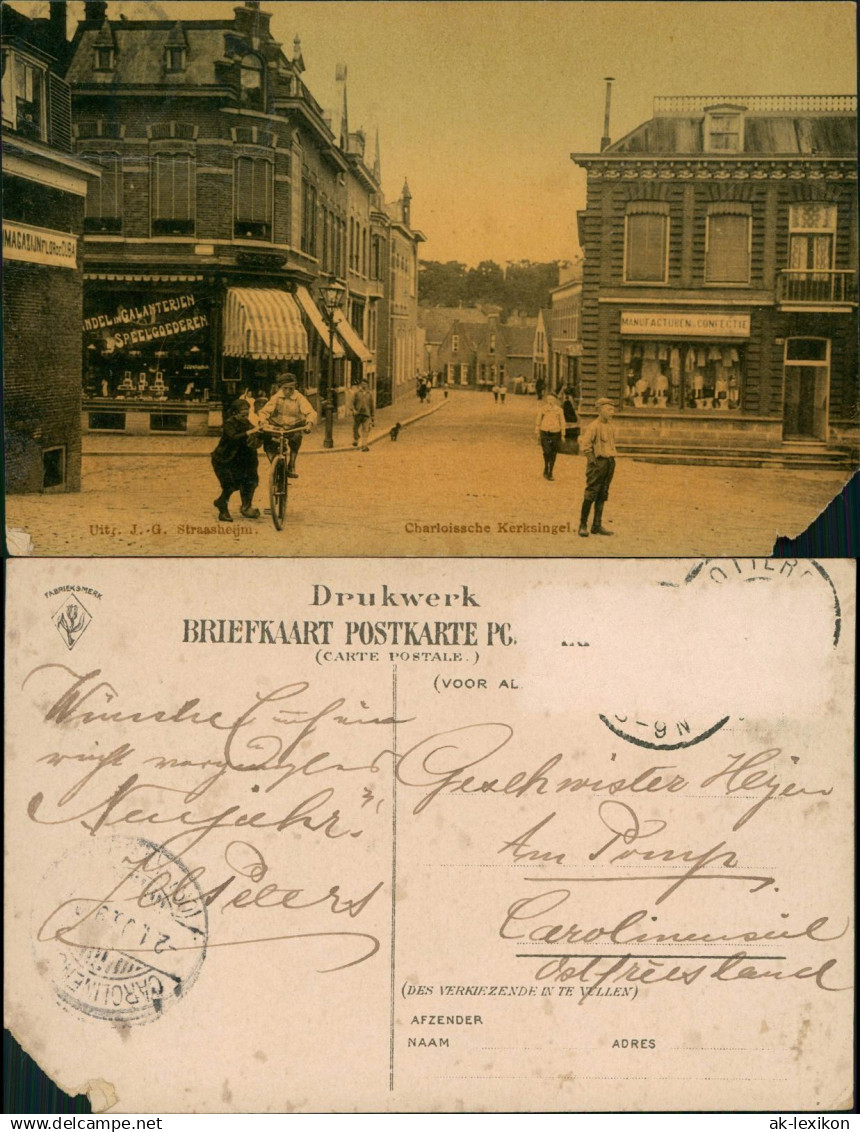 MAGAZIJN FLOR DE CUBA
NDEL IN GALANTERIEN
SPEELGOEDEREN
MANUFACTUREN & CONFECTIE
Uitg. J. G. Straasheijm.
Charloissche Kerksingel.
FABRIEKSMERK
Drukwerk
BRIEFKAART POSTKARTE PC.
(CARTE POSTALE.)
(VOOR AL
OTTER
5-9 N
Wünsche Euch ein
recht vergnügtes
Neujahr.
Peters
CAROLINEN
2.1.
Geschwister Heyen
Am Pomp
Carolinensiel
Ostfriesland
(DES VERKIEZENDE IN TE VULLEN)
AFZENDER
NAAM
ADRES
ak-lexikon